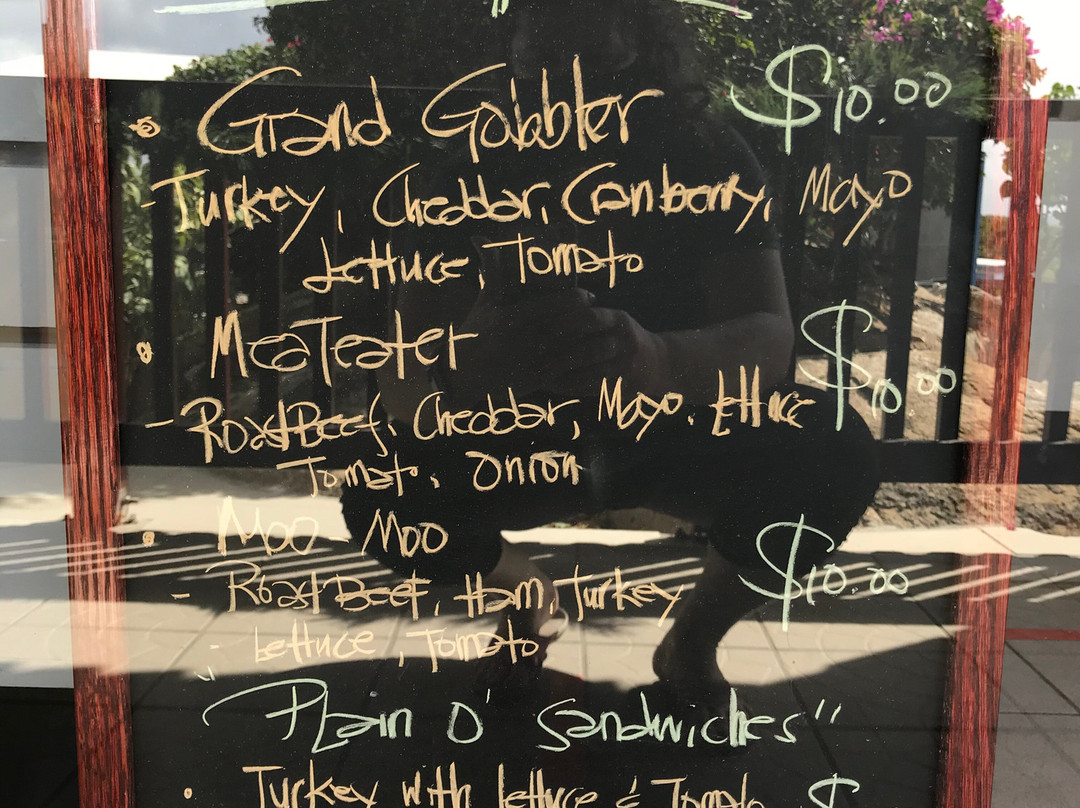 • Grand Gobbler $10.00
- Turkey, Cheddar, Cranberry, Mayo
Lettuce, Tomato
• MeaTeater $10.00
- Roast Beef, Cheddar, Mayo, Lettuce
Tomato, Onion
• Moo Moo
- Roast Beef, Ham, Turkey $10.00
- Lettuce, Tomato
"Plain O' Sandwiches"
• Turkey with lettuce & Tomato $